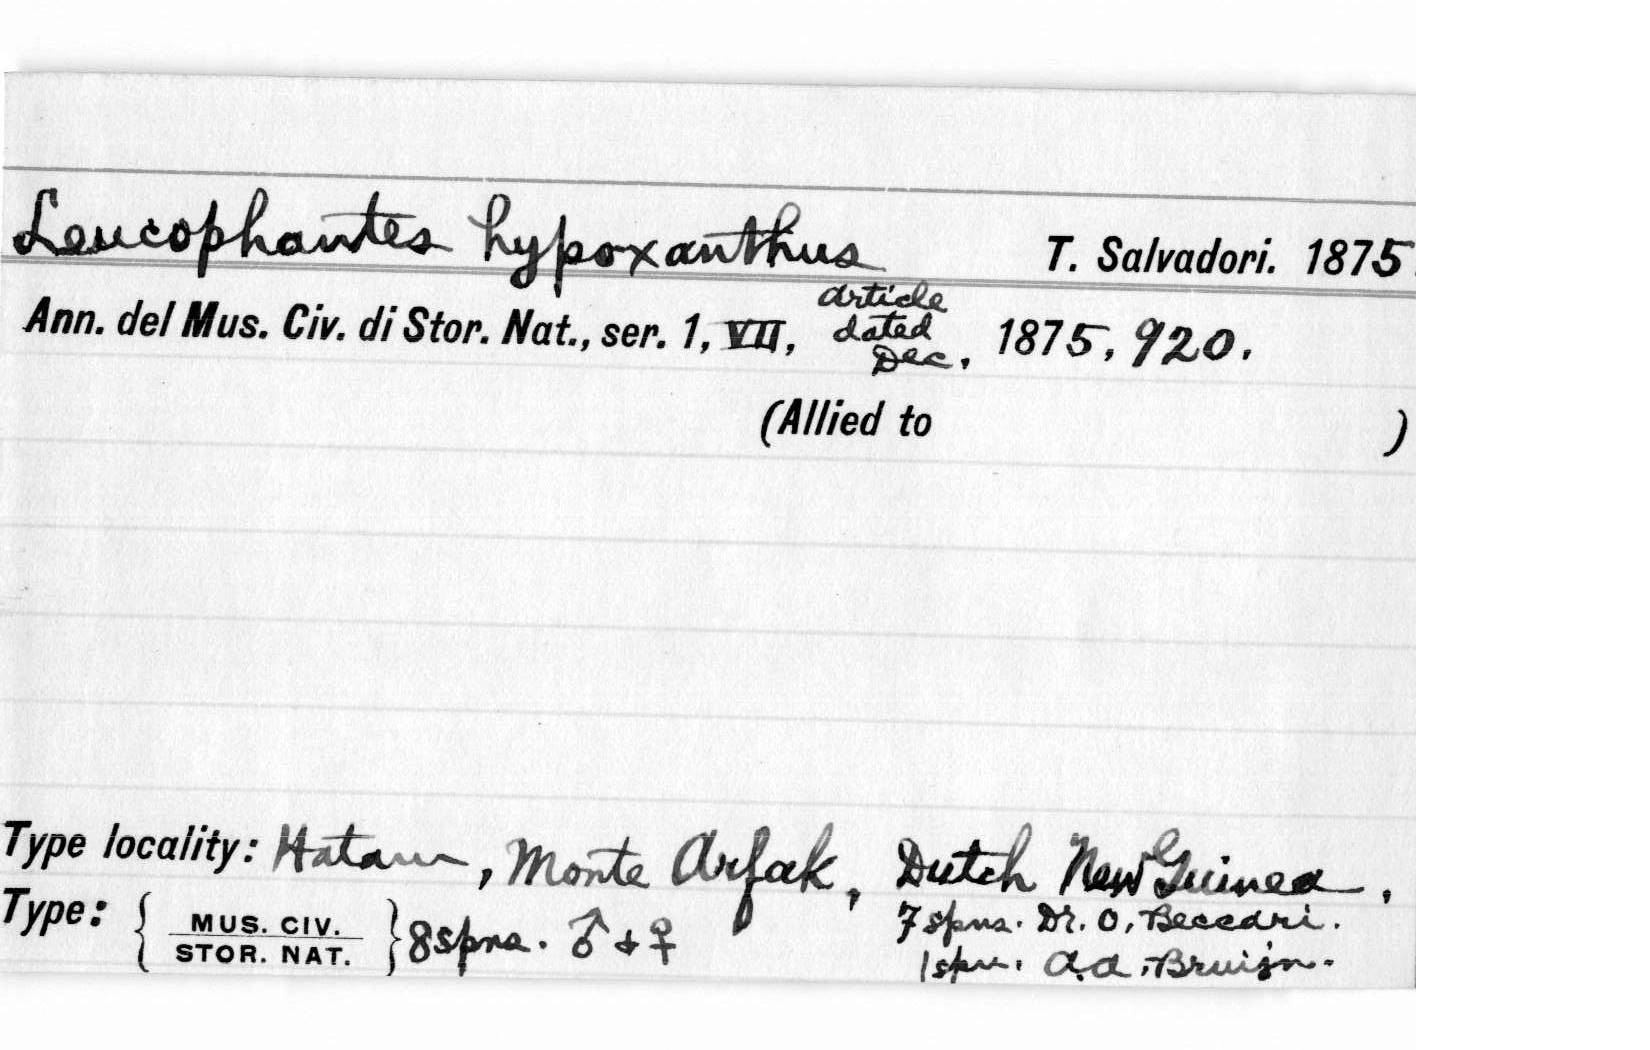 Leucophantes hypoxanthus T. Salvadori. 1875
Ann. del Mus. Civ. di Stor. Nat., ser. 1, VII, article dated Dec. 1875, 920.
(Allied to )
Type locality: Hatam, Monte Arfak, Dutch New Guinea,
Type: { MUS. CIV. STOR. NAT. } 8 spns. ♂ + ♀
7 spns. Dr. O. Beccari.
1 spn. A.A. Bruijn.